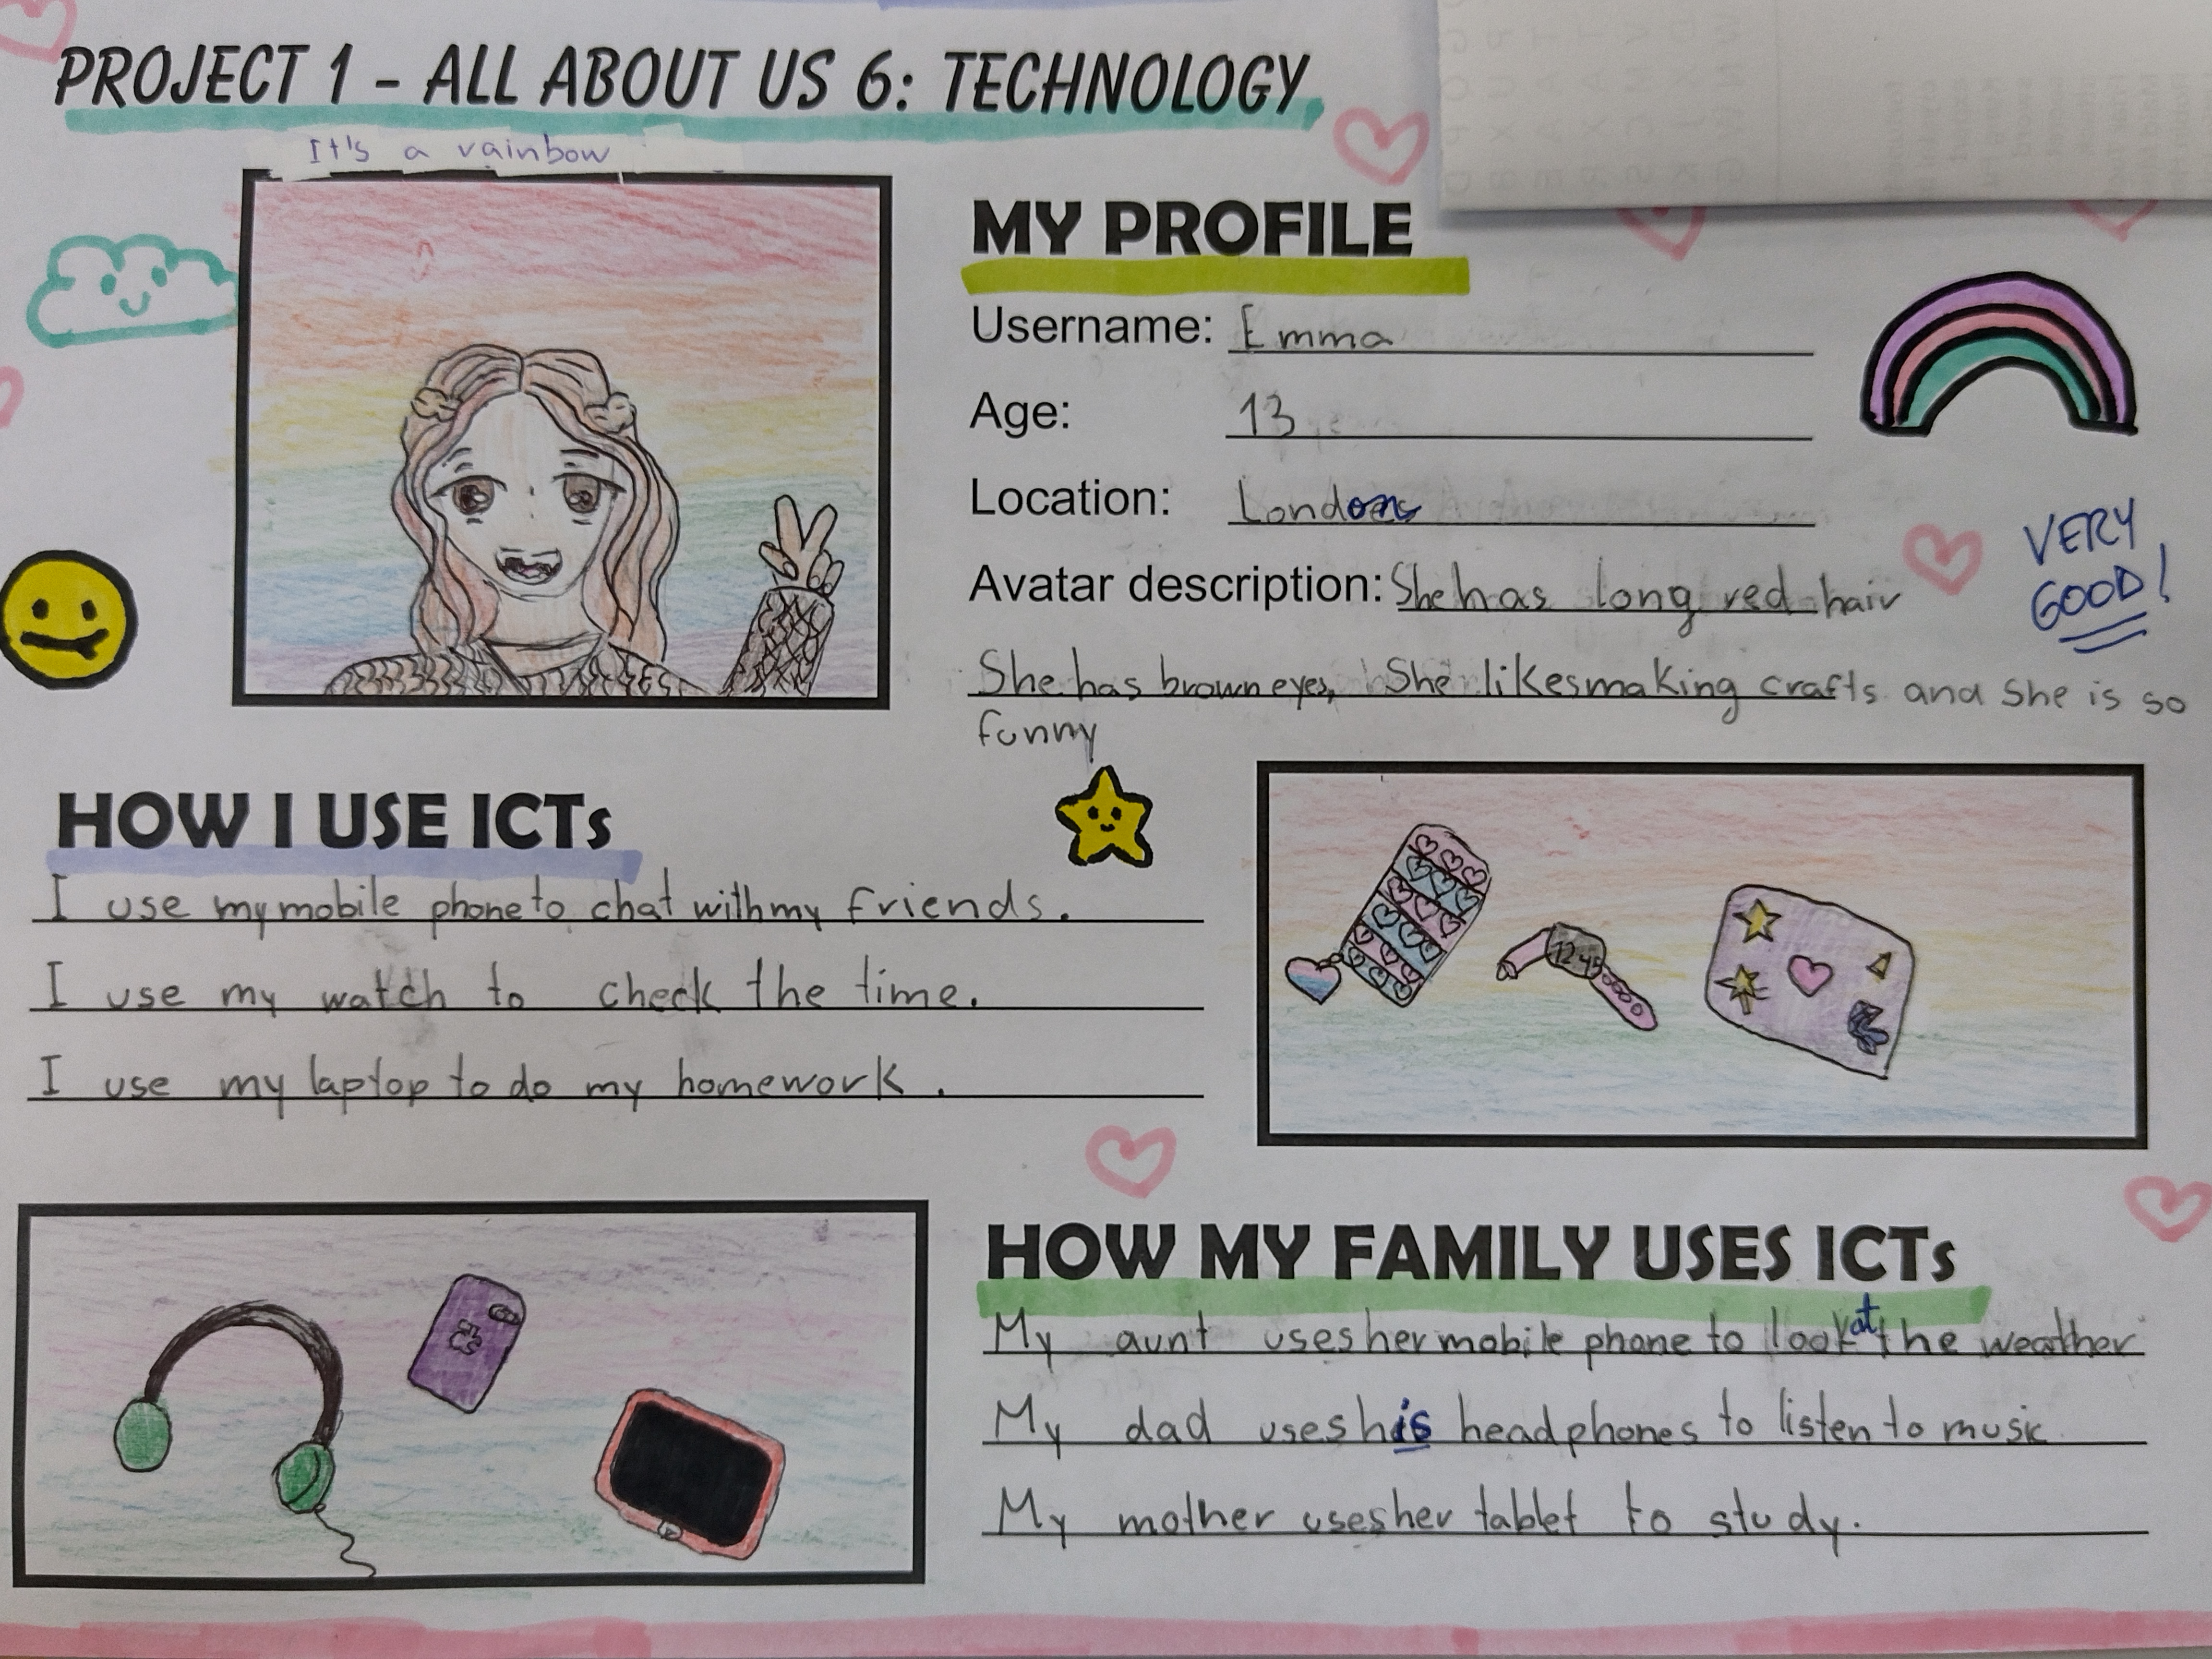 PROJECT 1 - ALL ABOUT US 6: TECHNOLOGY
It's a rainbow
MY PROFILE
Username: Emma
Age: 13
Location: London
Avatar description: She has long red hair
She has brown eyes, She likes making crafts and she is so
funny
VERY
GOOD!
HOW I USE ICTs
I use my mobile phone to chat with my friends.
I use my watch to check the time.
I use my laptop to do my homework.
12:45
HOW MY FAMILY USES ICTs
My aunt uses her mobile phone to look at the weather
My dad uses his headphones to listen to music
My mother uses her tablet to study.